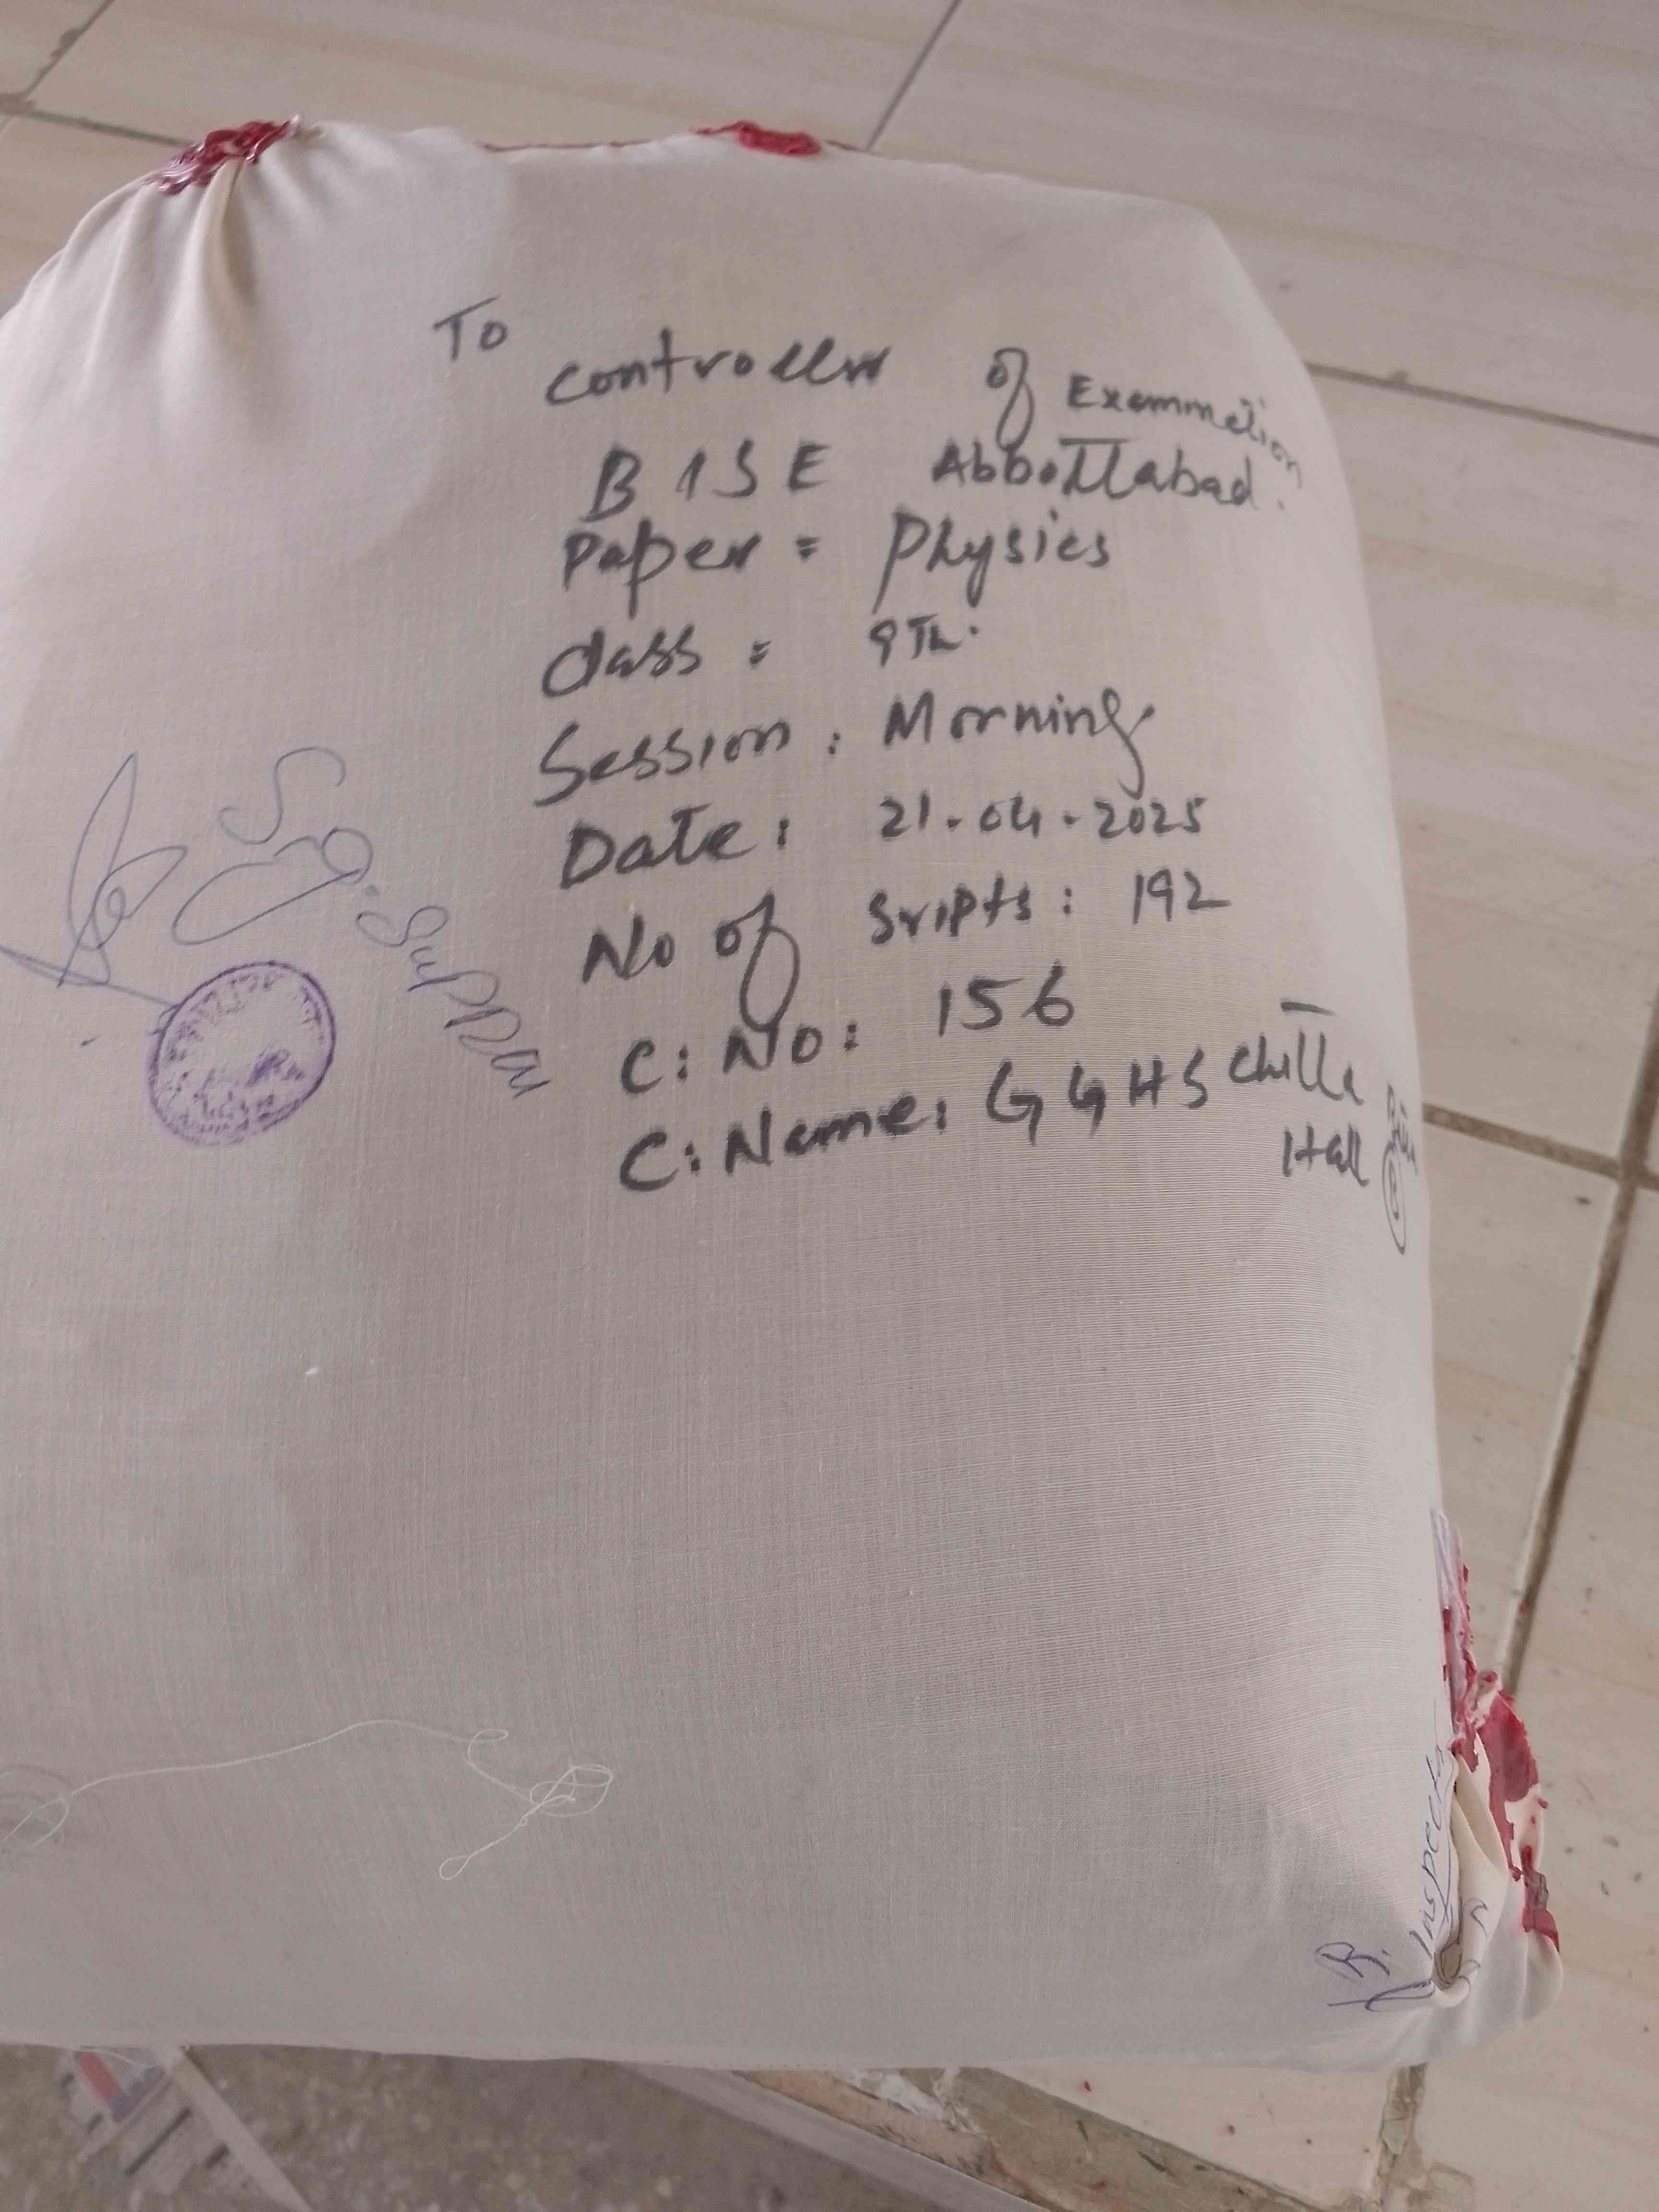 To
Controller of Exammetion
BISE Abbottabad.
Paper = Physics
Class = 9Th.
Session: Morning
Date: 21-04-2025
No of Sripts: 192
C: No: 156
C: Name: GGHS Chitta
Hall
Sig. Supdtt
Inspector